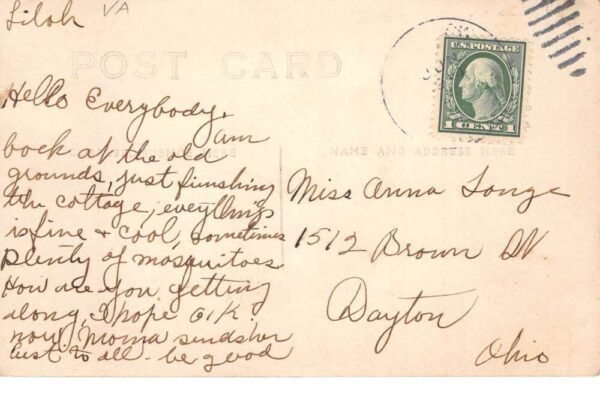 Siloh VA
POST CARD
U.S. POSTAGE
1 CENT 1
Hello Everybody,
am
back at the old
grounds, just finishing
the cottage, everything
is fine & cool, sometimes
plenty of mosquitoes
How are you getting
along, I hope O.K.
now. Moma sends her
best to all - be good
NAME AND ADDRESS HERE
Miss Anna Longe
1512 Brown St
Dayton
Ohio